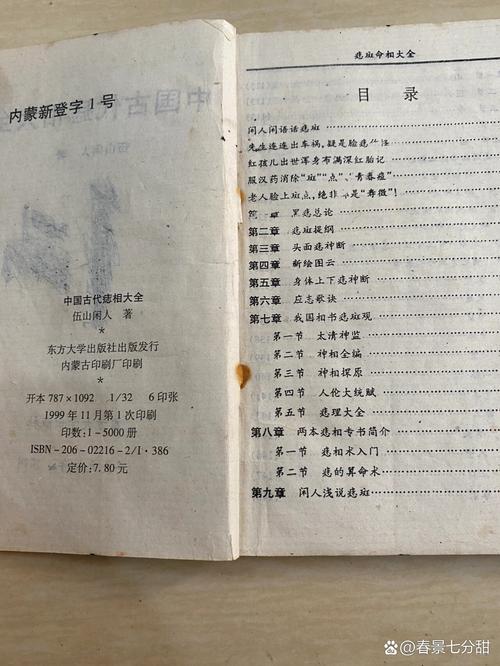 内蒙新登字1号
中国古代痣相大全
伍山闲人 著
*
东方大学出版社出版发行
内蒙古印刷厂印刷
*
开本 787×1092 1/32 6印张
1999年11月第1次印刷
印数:1-5000册
ISBN-206-02216-2/I·386
定价:7.80元
痣斑命相大全
目 录
闲人闲语话痣斑
先生连连出车祸,疑是脸痣作怪
红孩儿出世浑身布满深红胎记
服汉药消除“斑”“点”、“青春痘”
老人脸上斑点,绝非是“寿徵”!
章 黑痣总论
第二章 痣斑提纲
第三章 头面痣神断
第四章 新绘图云
第五章 身体上下痣神断
第六章 应志歌诀
第七章 我国相书痣斑观
第一节 太清神监
第二节 神相全编
第三节 神相探原
第四节 人伦大统赋
第五节 痣理大全
第八章 两本痣相专书简介
第一节 痣相术入门
第二节 痣的算命术
第九章 闲人浅说痣斑
春景七分甜